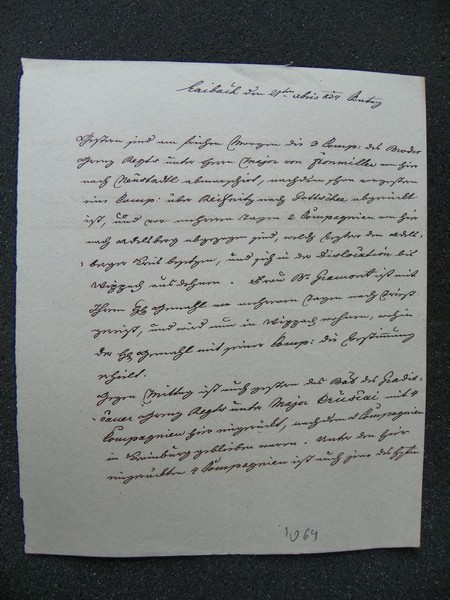 Laibach den 21ten 834
Gestern sind am frühen Morgen die 3 Comp: des Broder
Grenz Regts unter Herrn Major von von hier
nach Neustadtl abmarschirt, nachdem schon vorgestern
eine Comp: über Reifnitz nach Gottschee abgerückt
ist, und vor mehreren Tagen 2 Compagnien von hier
nach Adelsberg abgegangen sind, welche den Adels-
berger Kreis besetzen, und sich in der Dislocation bis
Wippach ausdehnen. Frau Bn. Gramont ist mit
Ihrem H Gemahl vor mehreren Tagen nach Triest
gereist, und wird nun in Wippach wohnen, wohin
der H Gemahl mit seiner Comp: die Bestimmung
erhielt.
Gegen Mittag ist auch gestern das Bat des Gradis-
caner Grenz Regts unter Major mit 4
Compagnien hier eingerückt, nachdem 2 Compagnien
in Krainburg geblieben waren. Unter den hier
eingerückten 4 Compagnien ist auch jene des Hptm
1064